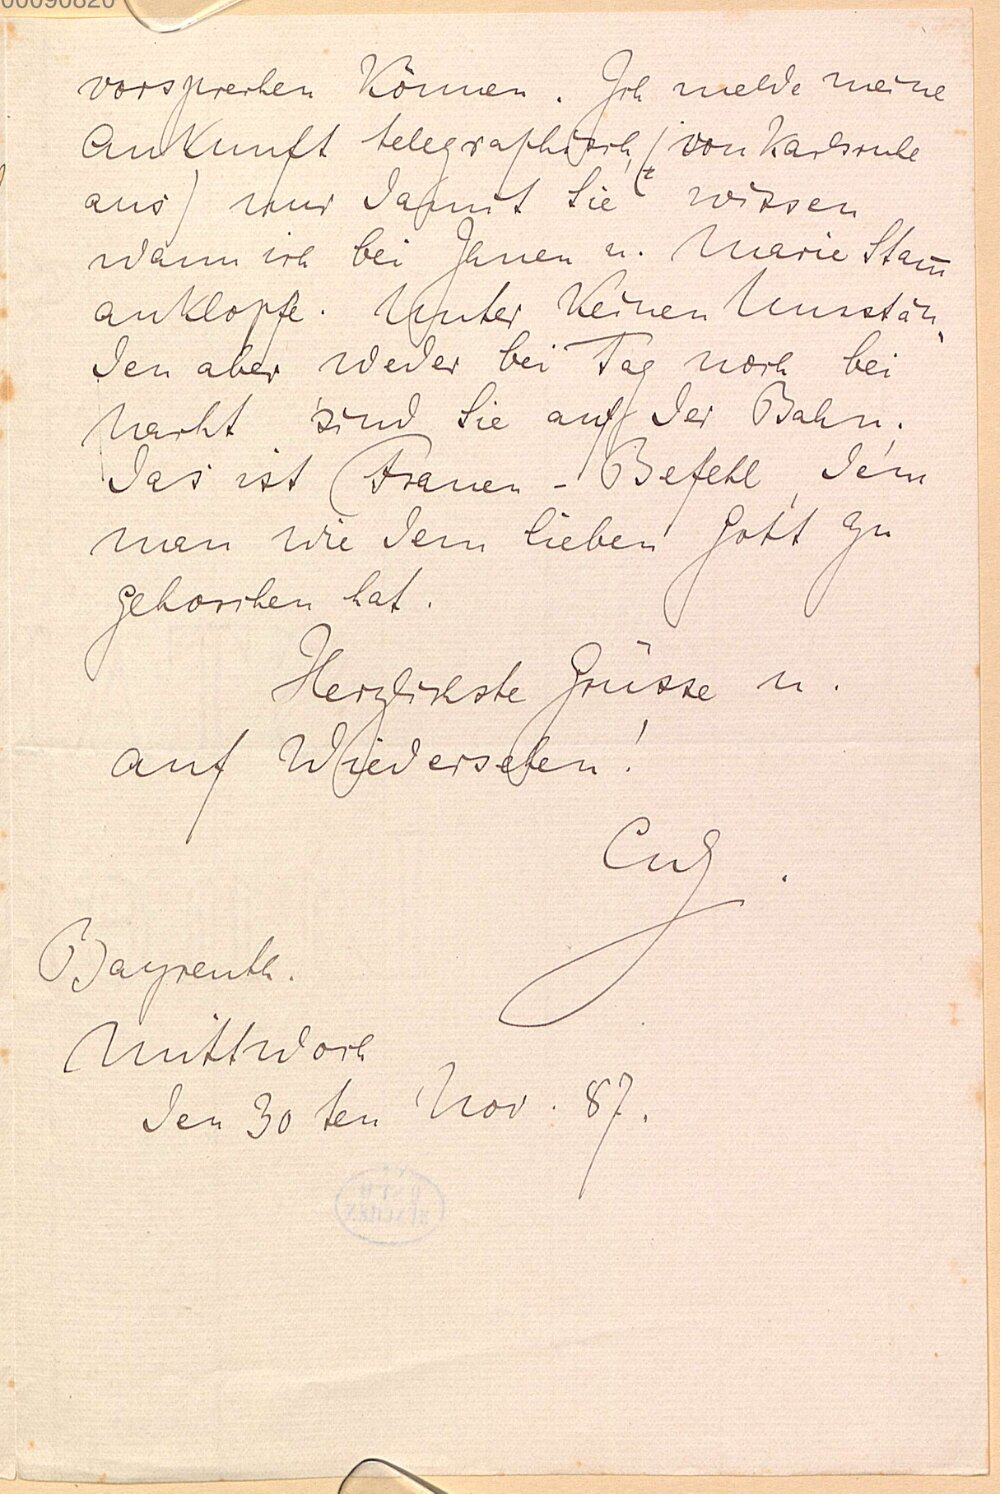 00090820
vorsprechen können. Ich melde meine
Ankunft telegraphisch, (von Karlsruhe
aus) nur damit Sie wissen
wann ich bei Ihnen u. Marie Stam̅
anklopfe. Unter keinen Umstän-
den aber weder bei Tag noch bei
Nacht sind Sie auf der Bahn.
Das ist Frauen-Befehl, dem
man wie dem lieben Gott zu
gehorchen hat.
Herzlichste Grüsse u.
auf Wiedersehen!
Bayreuth.
Mittwoch
den 30ten Nov. 87.